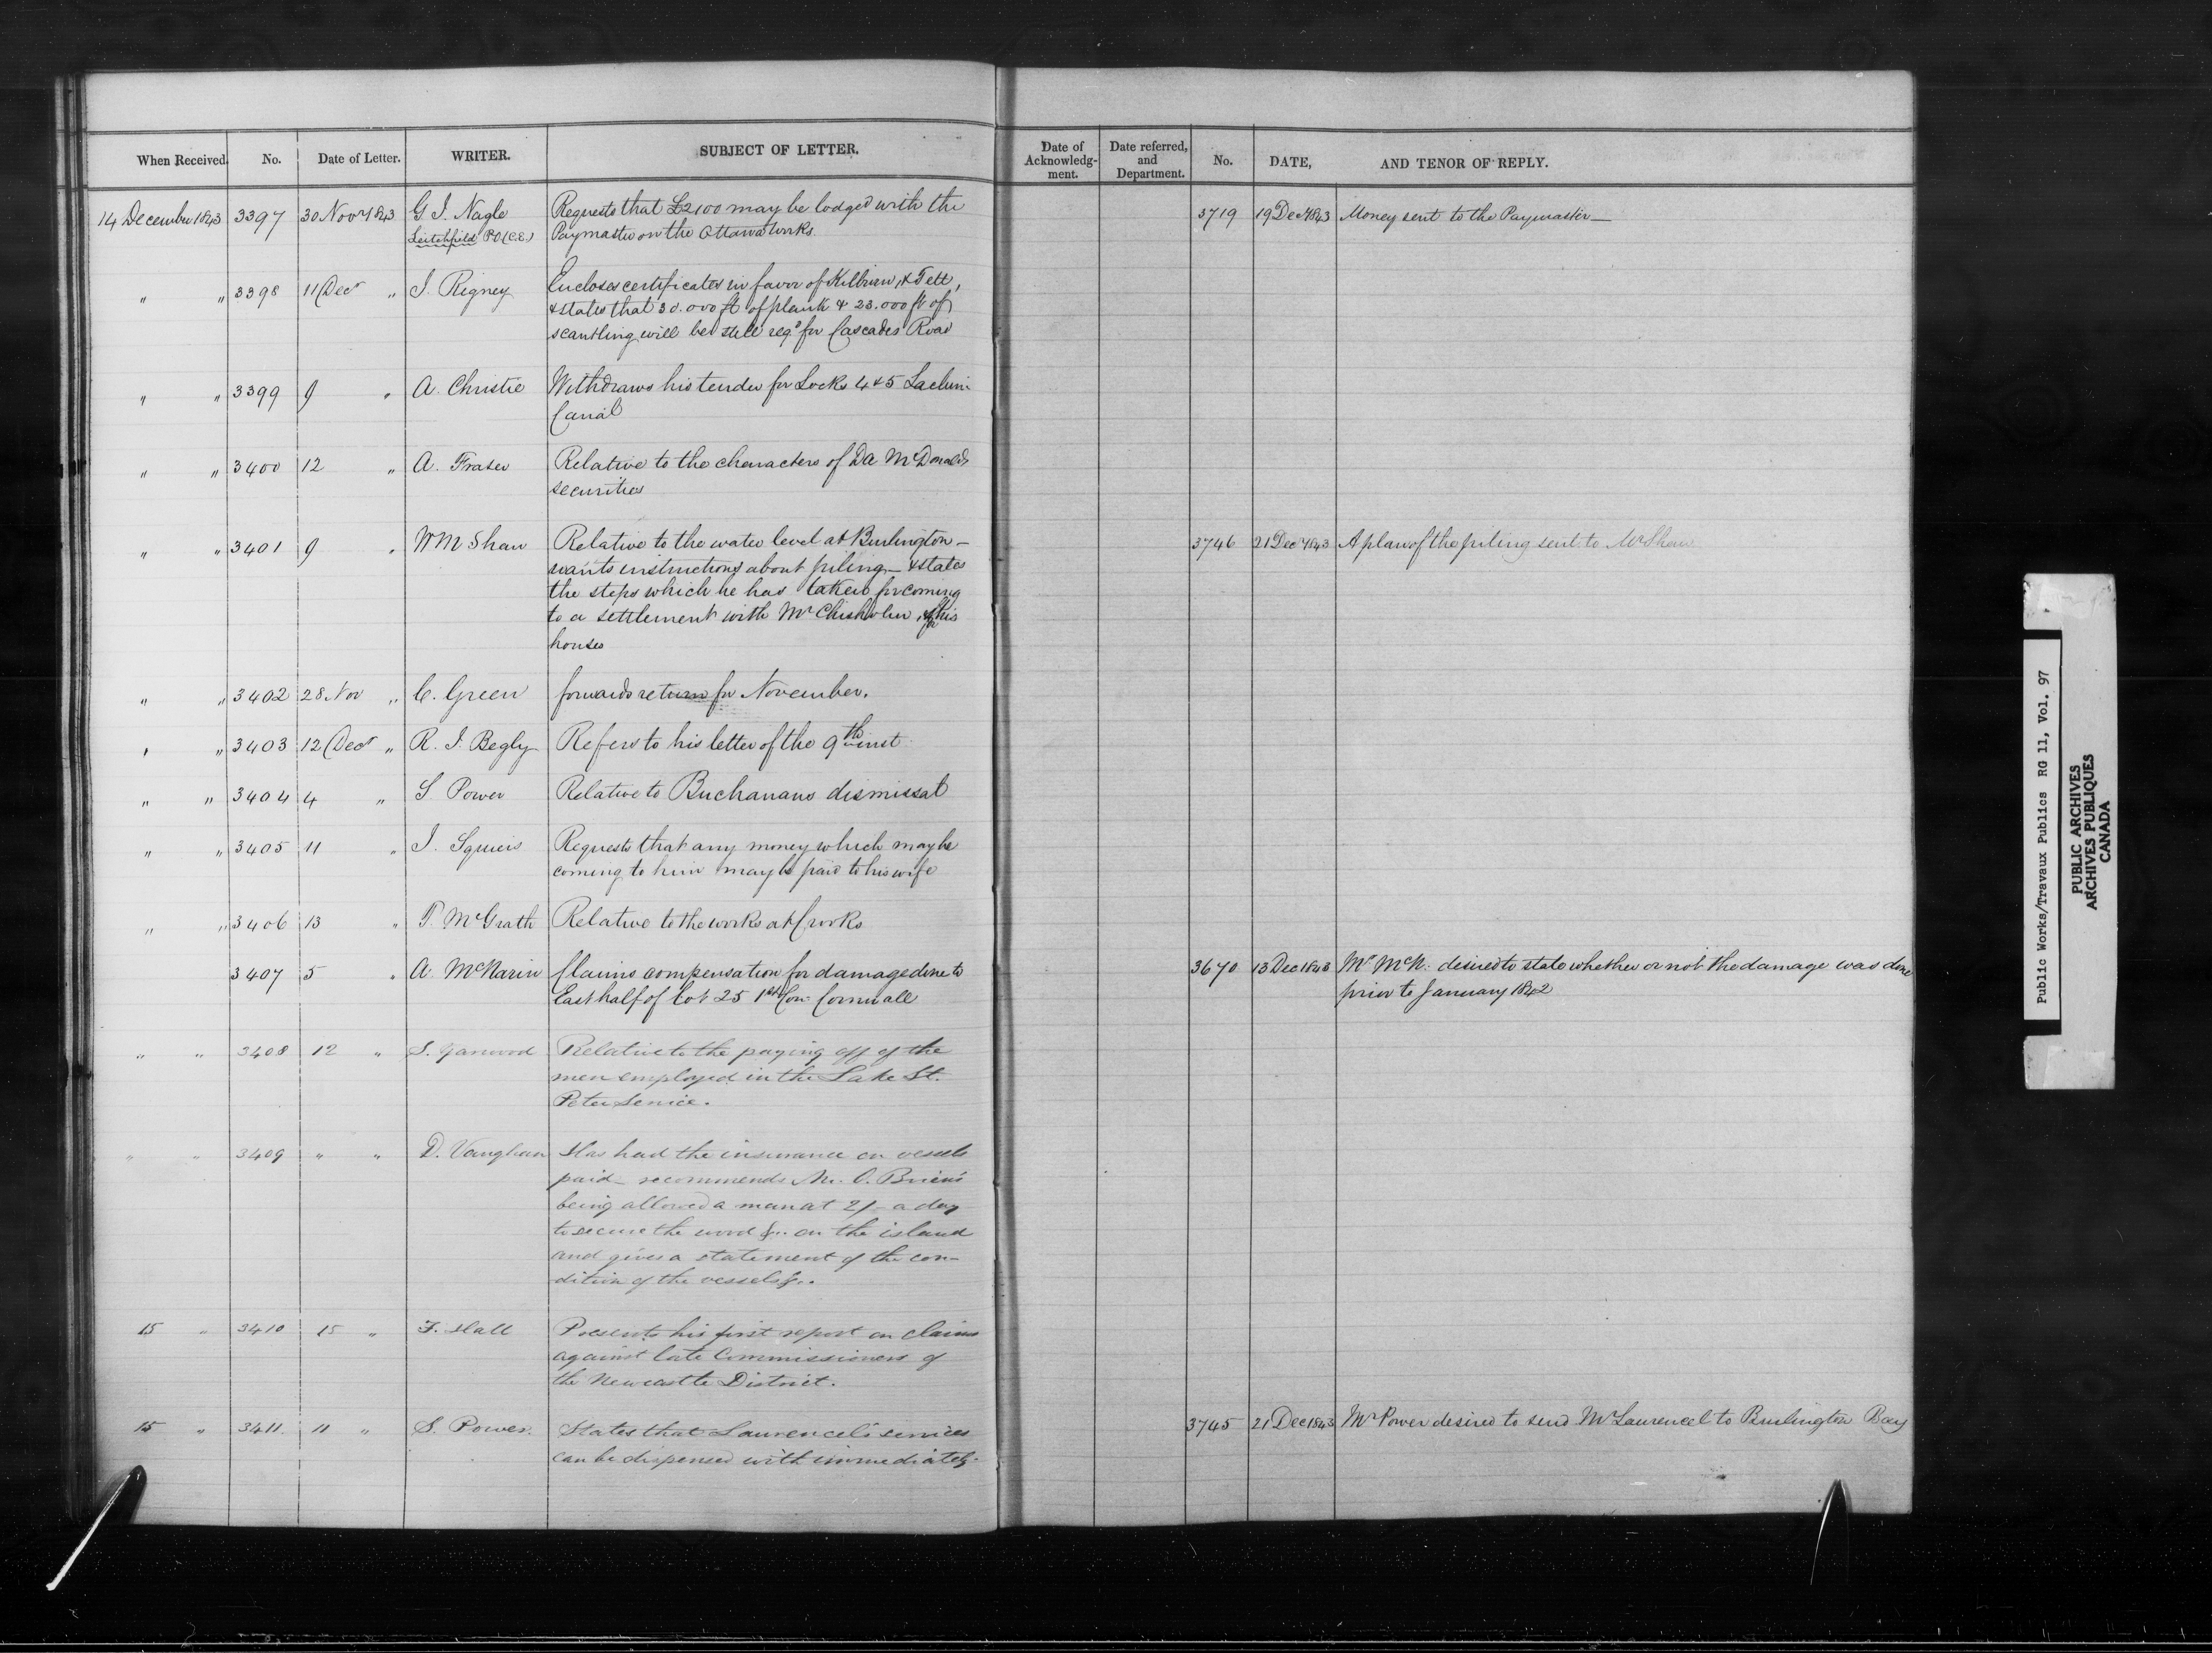 When Received. No. Date of Letter. WRITER. SUBJECT OF LETTER. Date of Acknowledg-ment. Date referred, and Department. No. DATE, AND TENOR OF REPLY.
14 December 1843 3397 30 Novr 1843 G I. Nagle Requests that £2100 may be lodged with the 3719 19 Decr 1843 Money sent to the Paymaster—
Leitchfield P.O (C.E.) Paymaster on the Ottawa Works.
" " 3398 11 Decr " I. Rigney Encloses certificates in favor of Kilburn & Tett,
& states that 30.000 ft of plank & 23.000 ft of
scantling will be still reqd for Cascades Road
" " 3399 9 " A. Christie Withdraws his tender for Locks 4 & 5 Lachine
Canal
" " 3400 12 " A. Fraser Relative to the characters of Da McDonalds
securities
" " 3401 9 " W M Shaw Relative to the water level at Burlington— 3746 21 Decr 1843 A plan of the piling sent to Mr Shaw
wants instructions about piling— & states
the steps which he has taken for coming
to a settlement with Mr Chisholm, for his
houses
" " 3402 28 Nov " C. Green forwards return for November.
" " 3403 12 Decr " R. I. Begly Refers to his letter of the 9th inst
" " 3404 4 " S Power Relative to Buchanans dismissal
" " 3405 11 " I. Squiers Requests that any money which may be
coming to him may be paid to his wife
" " 3406 13 " T. McGrath Relative to the works at Crooks
3407 5 " A. McNarin Claims compensation for damage done to 3670 13 Dec 1843 Mr McN: desired to state whether or not the damage was done
East half of lot 25 1st Con: Cornwall prior to January 1842
" " 3408 12 " S. Yarwood Relative to the paying off of the
men employed in the Lake St.
Peter Service.
" " 3409 " " D. Vaughan Has had the insurance on vessels
paid— recommends Mr. O. Brien's
being allowed a man at 2/- a day
to secure the wood &c. on the island
and gives a statement of the con-
dition of the vessels &c.
15 " 3410 15 " F. Hall Presents his first report on claims
against late Commissioners of
the Newcastle District.
15 " 3411. 11 " S. Power. States that Laurencel's services 3745 21 Dec 1843 Mr Power desired to send Mr Laurencel to Burlington Bay
can be dispensed with immediately.
Public Works/Travaux Publics RG 11, Vol. 97
PUBLIC ARCHIVES
ARCHIVES PUBLIQUES
CANADA